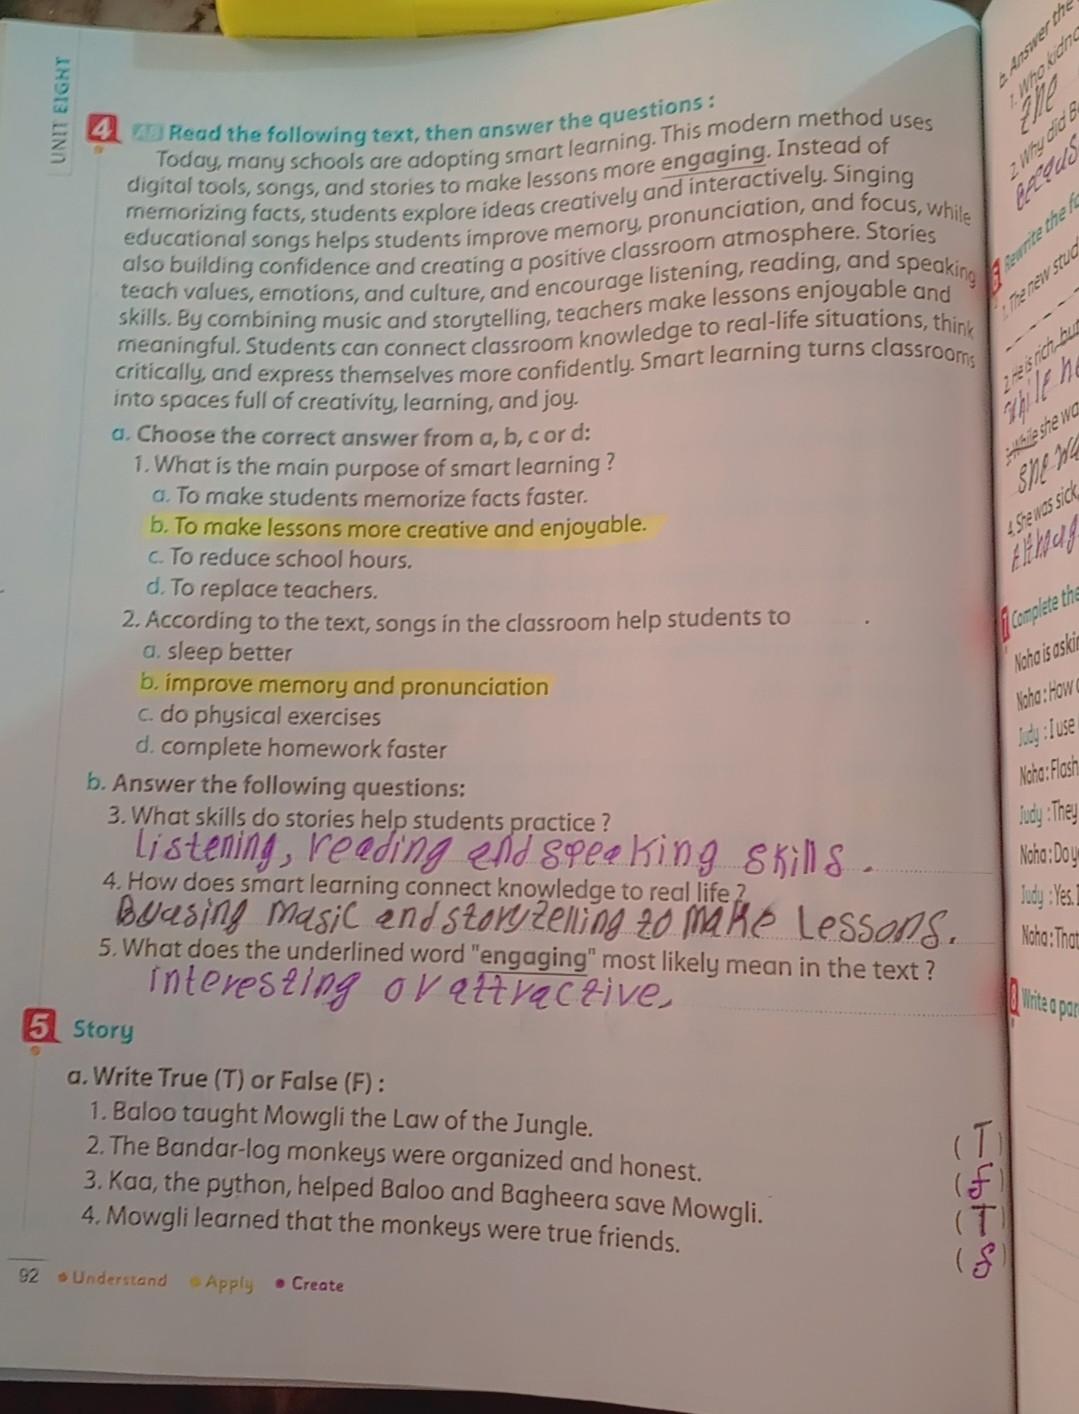 UNIT EIGHT
4 Read the following text, then answer the questions :
Today, many schools are adopting smart learning. This modern method uses
digital tools, songs, and stories to make lessons more engaging. Instead of
memorizing facts, students explore ideas creatively and interactively. Singing
educational songs helps students improve memory, pronunciation, and focus, while
also building confidence and creating a positive classroom atmosphere. Stories
teach values, emotions, and culture, and encourage listening, reading, and speaking
skills. By combining music and storytelling, teachers make lessons enjoyable and
meaningful. Students can connect classroom knowledge to real-life situations, think
critically, and express themselves more confidently. Smart learning turns classrooms
into spaces full of creativity, learning, and joy.
a. Choose the correct answer from a, b, c or d:
1. What is the main purpose of smart learning ?
a. To make students memorize facts faster.
b. To make lessons more creative and enjoyable.
c. To reduce school hours.
d. To replace teachers.
2. According to the text, songs in the classroom help students to .
a. sleep better
b. improve memory and pronunciation
c. do physical exercises
d. complete homework faster
b. Answer the following questions:
3. What skills do stories help students practice ?
Listening, reading and speaking skills.
4. How does smart learning connect knowledge to real life ?
Byusing masic and storytelling to make Lessons.
5. What does the underlined word "engaging" most likely mean in the text ?
interesting or attractive.
5 Story
a. Write True (T) or False (F) :
1. Baloo taught Mowgli the Law of the Jungle. (T)
2. The Bandar-log monkeys were organized and honest. (f)
3. Kaa, the python, helped Baloo and Bagheera save Mowgli. (T)
4. Mowgli learned that the monkeys were true friends. ( )
92 Understand Apply Create
b. Answer the
1. Who
2. Why did
Rewrite the
1. The new
2. He is rich, but
while
3. While she
she
4. She was sick,
7 Complete the
Noha is
Noha : How
Judy : I use
Noha : Flash
Judy : They
Noha : Do
Judy : Yes.
Noha : That
8 Write a